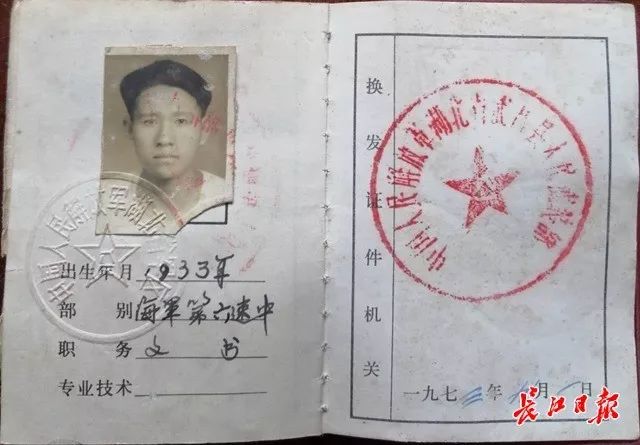 中国人民解放军湖北
出生年月 1933年
部别 海军第六速中
职务 文书
专业技术
换发证件机关
中国人民解放军湖北省武昌县人民武装部
一九七三年 月一日
长江日报